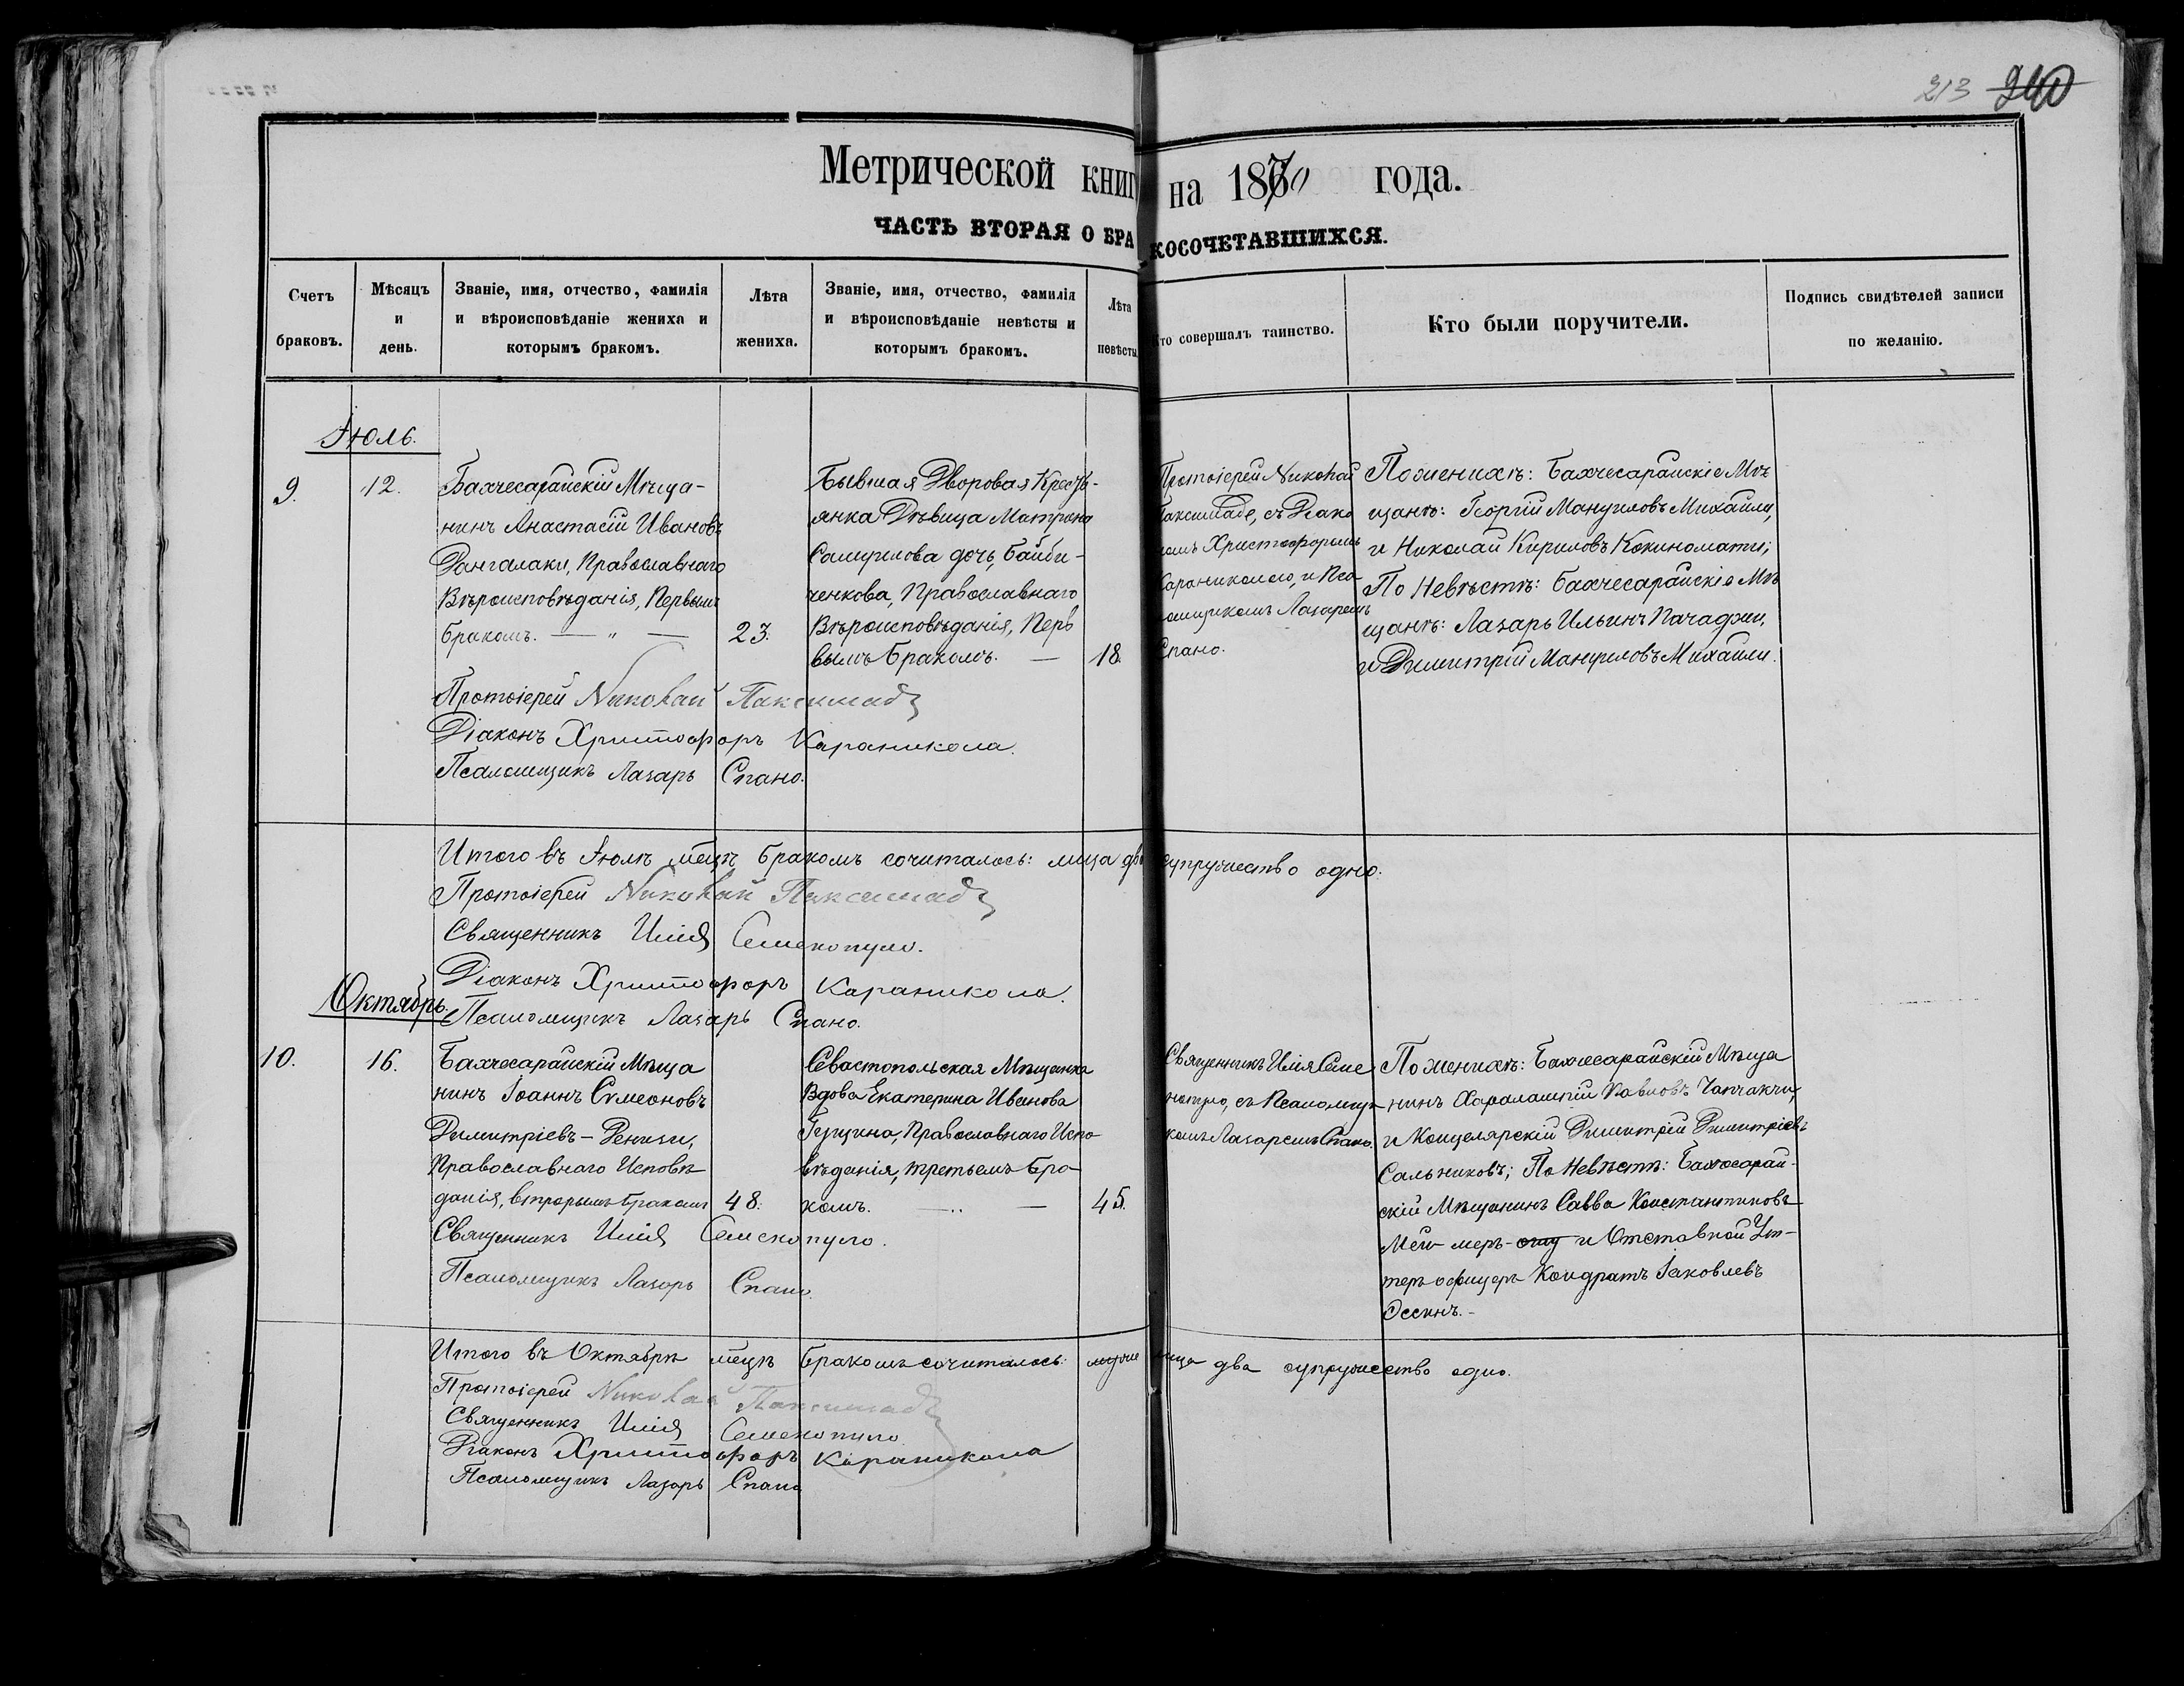 213 240
Метрической книг на 1870 года.
ЧАСТЬ ВТОРАЯ О БРАКОСОЧЕТАВШИХСЯ.
Счетъ браковъ.
Мѣсяцъ и день.
Званіе, имя, отчество, фамилія
и вѣроисповѣданіе жениха и
которымъ бракомъ.
Лѣта
жениха.
Званіе, имя, отчество, фамилія
и вѣроисповѣданіе невѣсты и
которымъ бракомъ.
Лѣта
невѣсты
Кто совершалъ таинство.
Кто были поручители.
Подпись свидѣтелей записи
по желанію.
Іюль.
9.
12.
Бахчесарайскій Мѣща-
нинъ Анастасій Ивановъ
Дангалаки, Православнаго
Вѣроисповѣданія, Первымъ
бракомъ. — " —
23.
Бывшая Дворовая Крестья-
янка Дѣвица Матрона
Самуилова дочь, Байби-
ченкова, Православнаго
Вѣроисповѣданія, Перв
вымъ бракомъ. —
18.
Протоіерей Николай
Паксимаде, съ Діако
номъ Христофоромъ
Караниколою, и Пса
ломщикомъ Лазаремъ
Спано.
По женихѣ: Бахчесарайскіе Мѣ
щане: Георгій Мануиловъ Михайли,
и Николай Кириловъ Кокиноматы;
По Невѣстѣ: Бахчесарайскіе Мѣ
щане: Лазарь Ильинъ Пачаджи,
и Димитрій Мануиловъ Михайли.
Протоіерей Николай Паксимадъ
Діаконъ Христофоръ Караникола.
Псаломщикъ Лазарь Спано.
Итого въ Іюлѣ мѣцѣ бракомъ сочиталось: лица два супружество одно.
Протоіерей Николай Паксимадъ
Священникъ Илія Семенопуло.
Діаконъ Христофоръ Караникола.
Псаломщикъ Лазарь Спано.
Октябрь.
10.
16.
Бахчесарайскій Мѣща
нинъ Іоаннъ Симеоновъ
Димитріевъ-Ренизи,
Православнаго Исповѣ
данія, вторымъ бракомъ
48.
Севастопольская Мѣщанка
Вдова Екатерина Иванова
Гущина, Православнаго Испо
вѣданія, третьемъ бра
комъ. — .. —
45.
Священникъ Илія Семе
нопуло, съ Псаломщи
комъ Лазаремъ Спано.
По женихѣ: Бахчесарайскій Мѣща
нинъ Харалампій Павловъ Чапчакчи,
и Канцелярскій Димитрій Димитріевъ
Сальниковъ; По Невѣстѣ: Бахчесарай-
скій Мѣщанинъ Савва Константиновъ
и Отставной Ун-
теръ офицеръ Кондратъ Іаковлевъ
Есинъ.-
Священникъ Илія Семенопуло.
Псаломщикъ Лазарь Спано.
Итого въ Октябрѣ мѣцѣ бракомъ сочиталось: лица два супружество одно.
Протоіерей Николай Паксимадъ
Священникъ Илія Семенопуло
Діаконъ Христофоръ Караникола
Псаломщикъ Лазарь Спано